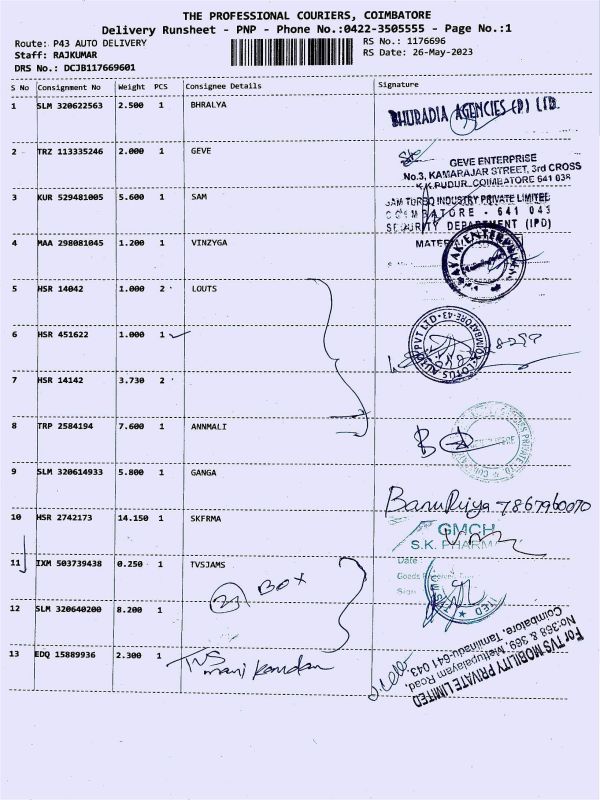 THE PROFESSIONAL COURIERS, COIMBATORE
Delivery Runsheet - PNP - Phone No.:0422-3505555 - Page No.:1
Route: P43 AUTO DELIVERY
RS No.: 1176696
Staff: RAJKUMAR
RS Date: 26-May-2023
DRS No.: DCJB117669601
S No Consignment No Weight PCS Consignee Details Signature
1 SLM 320622563 2.500 1 BHRALYA
BHURADIA AGENCIES (P) LTD.
2 TRZ 113335246 2.000 1 GEVE
GEVE ENTERPRISE
No.3, KAMARAJAR STREET, 3rd CROSS
K.K.PUDUR, COIMBATORE 641 038
3 KUR 529481005 5.600 1 SAM
SAM TURBO INDUSTRY PRIVATE LIMITED
COIMBATORE - 641 043
SECURITY DEPARTMENT (IPD)
4 MAA 298081045 1.200 1 VINZYGA
5 HSR 14042 1.000 2 LOUTS
6 HSR 451622 1.000 1
7 HSR 14142 3.730 2
8 TRP 2584194 7.600 1 ANNMALI
9 SLM 320614933 5.800 1 GANGA
Banupriya 7867960070
10 HSR 2742173 14.150 1 SKFRMA
GMCH
S.K. PHARMA
11 IXM 503739438 0.250 1 TVSJAMS
Date
BOX
12 SLM 320640200 8.200 1
13 EDQ 15889936 2.300 1
TVS
manikandan
For TVS MOBILITY PRIVATE LIMITED
No:368 & 369, Mettupalayam Road,
Coimbatore, Tamilnadu-641 043.